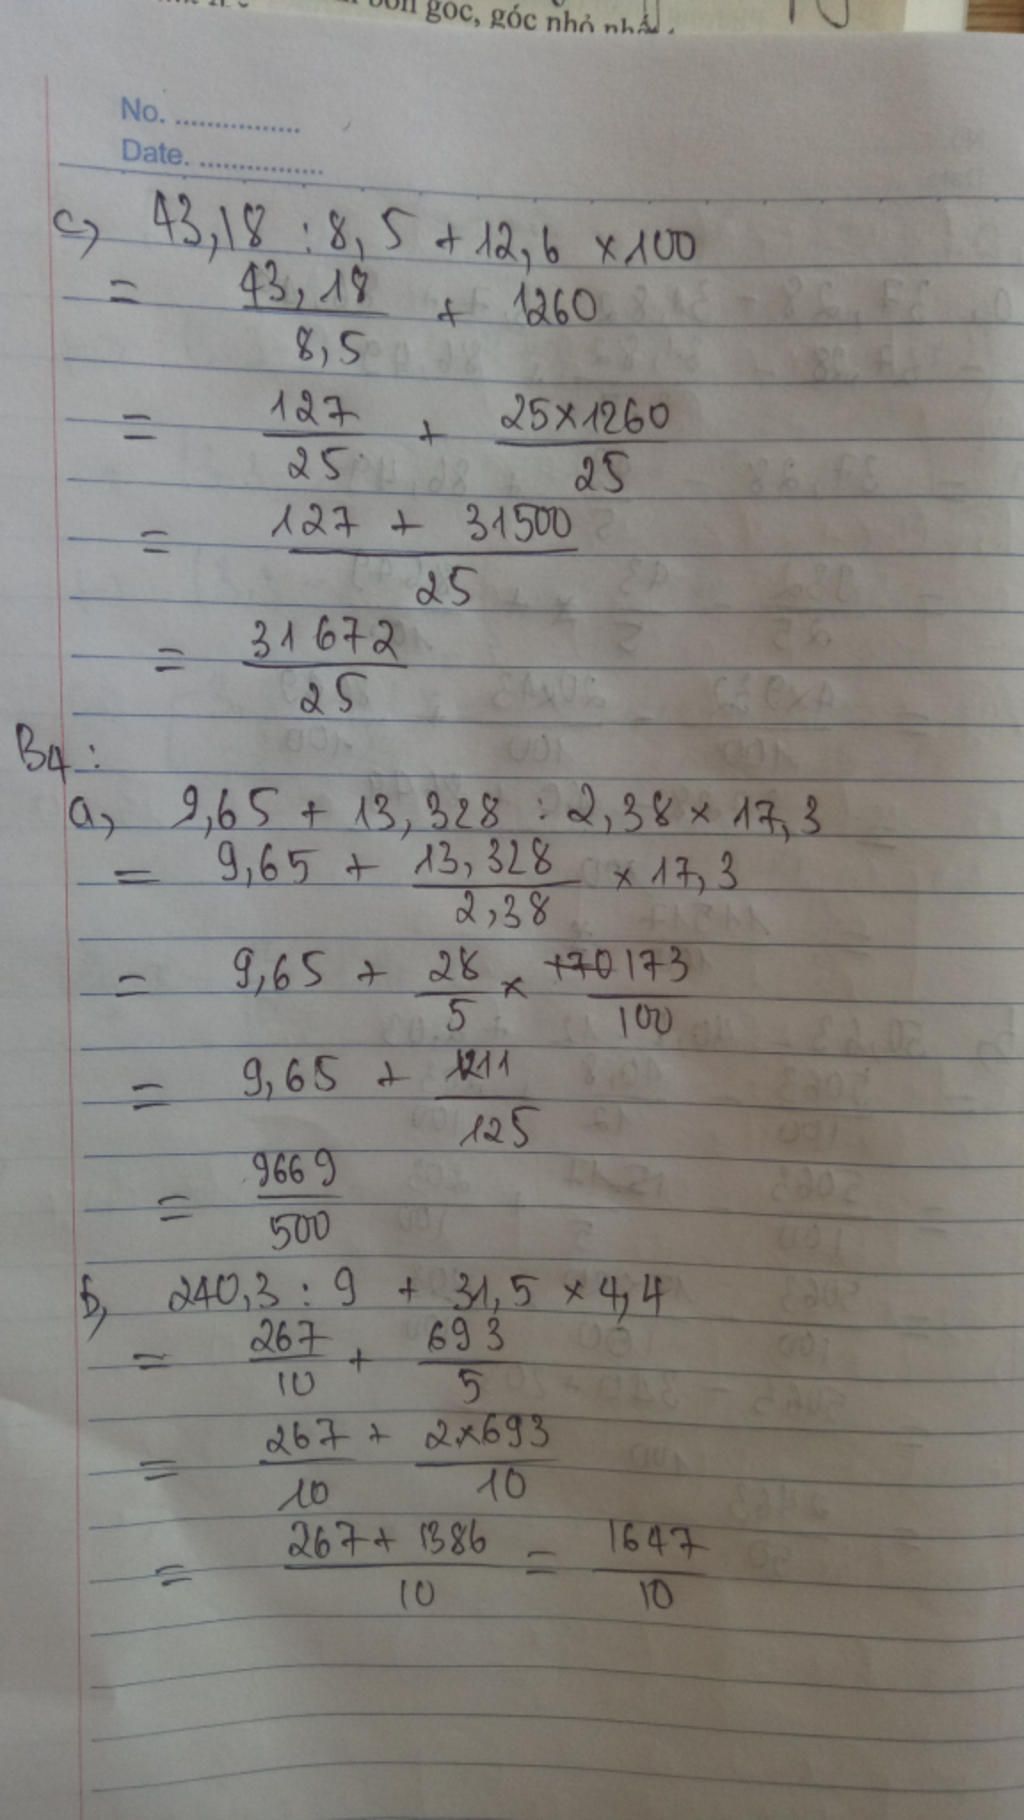 bốn góc, góc nhỏ nhất
No. ................
Date. ................
c, 43,18 : 8,5 + 12,6 × 100
= 43,18/8,5 + 1260
= 127/25 + 25×1260/25
= 127 + 31500/25
= 31672/25
B4 :
a, 9,65 + 13,328 : 2,38 × 17,3
= 9,65 + 13,328/2,38 × 17,3
= 9,65 + 28/5 × 170 173/100
= 9,65 + 1211/125
= 9669/500
b, 240,3 : 9 + 31,5 × 4,4
= 267/10 + 693/5
= 267/10 + 2×693/10
= 267 + 1386/10 = 1647/10